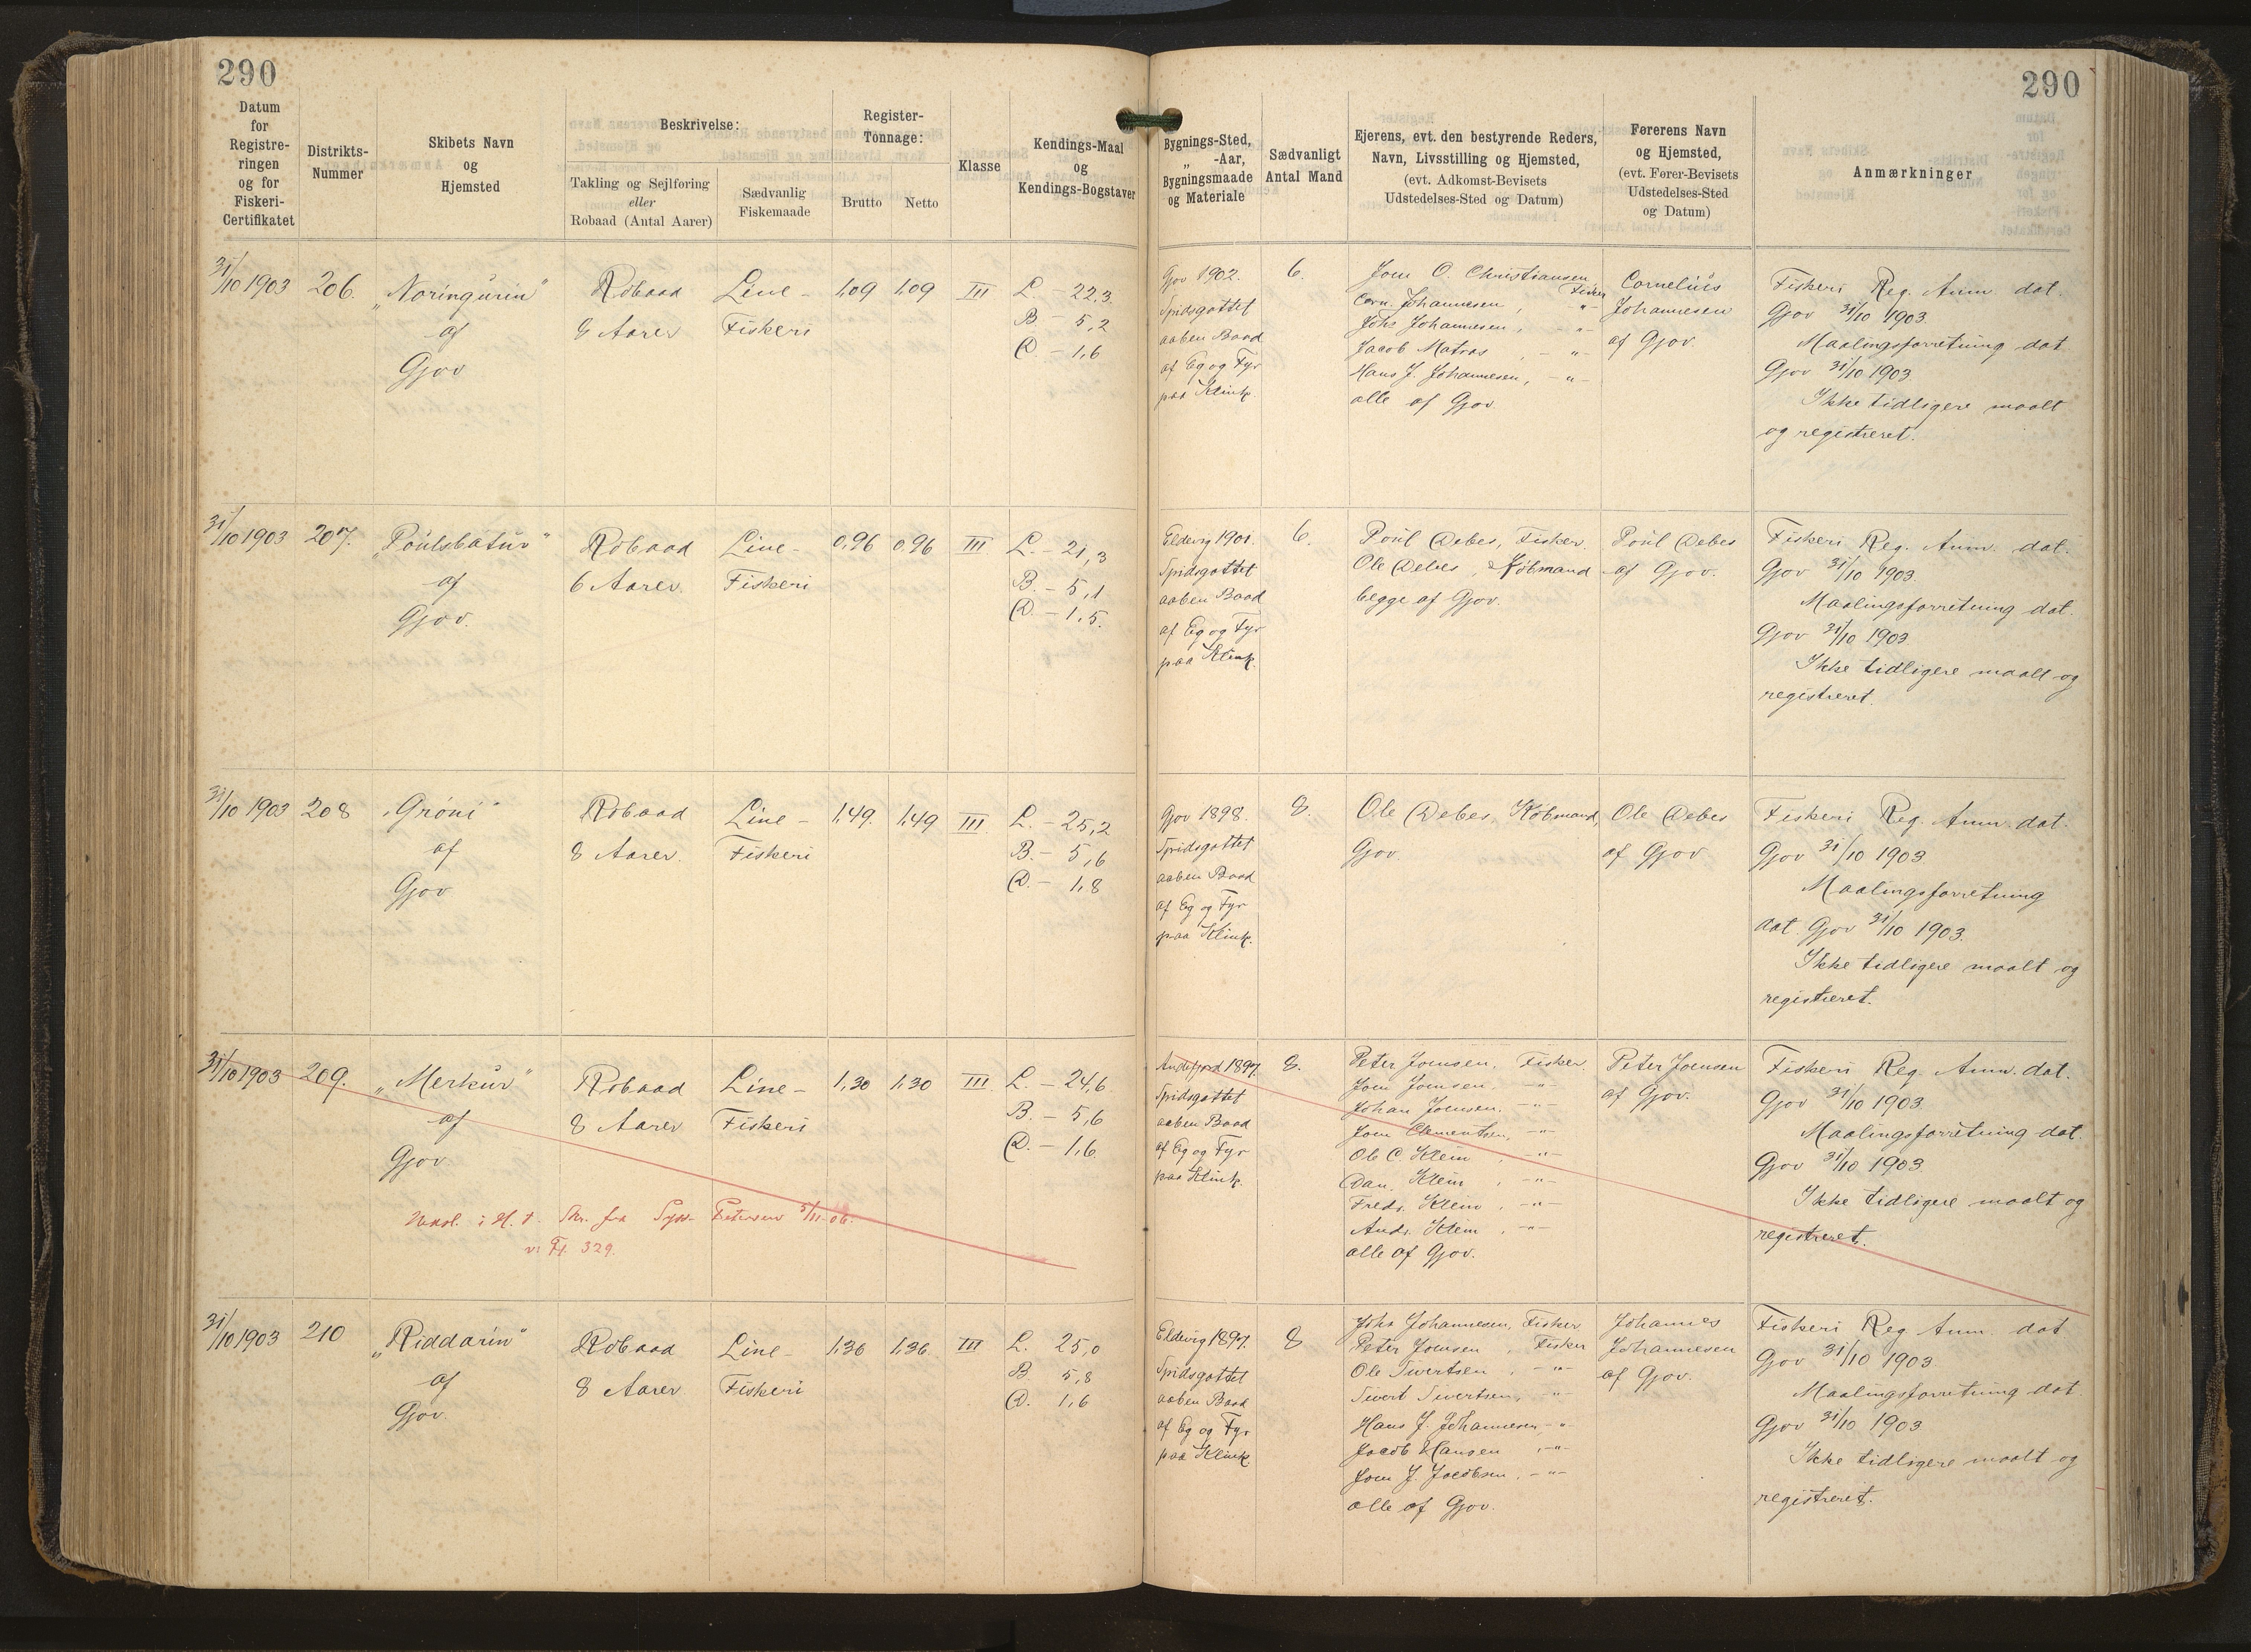 290
290
Datum
for
Registre-
ringen
og for
Fiskeri-
Certifikatet
Distrikts-
Nummer
Skibets Navn
og
Hjemsted
Beskrivelse:
Takling og Sejlføring
eller
Robaad (Antal Aarer)
Sædvanlig
Fiskemaade
Register-
Tonnage:
Brutto
Netto
Klasse
Kendings-Maal
og
Kendings-Bogstaver
Bygnings-Sted,
„ -Aar,
Bygningsmaade
og Materiale
Sædvanligt
Antal Mand
Ejerens, evt. den bestyrende Reders,
Navn, Livsstilling og Hjemsted,
(evt. Adkomst-Bevisets
Udstedelses-Sted og Datum)
Førerens Navn
og Hjemsted,
(evt. Fører-Bevisets
Udstedelses-Sted
og Datum)
Anmærkninger
31/10 1903
206.
„Noringurin"
af
Gjov
Robaad
Aarer
Line-
Fiskeri
1,09
1,09
III
L. - 22,3
B - 5,2
D. - 1,6
Gjov 1902.
Spidsgattet
aaben Baad
af Eg og Fyr
paa Klink.
6.
Joen O. Christiansen, Fisker
Corn. Johannesen, -"-
Johs Johannesen, -"-
Jacob Matras, -"-
Hans J. Johannesen, -"-
alle af Gjov
Cornelius
Johannesen
af Gjov.
Fiskeri Reg. Anm. dat.
Gjov 31/10 1903.
Maalingsforretning dat
Gjov 31/10 1903
Ikke tidligere maalt
og registreret.
31/10 1903
207.
„Poulsbátur"
af
Gjov.
Robaad
6 Aarer.
Line-
Fiskeri
0,96
0,96
III
L. - 21,3
B. - 5,1
D. - 1,5.
Eldevig 1901.
Spidsgattet
aaben Baad
af Eg og Fyr
paa Klink.
6.
Poul Debes, Fisker.
Ole Debes, Købmand
begge af Gjov.
Poul Debes
af Gjov.
Fiskeri Reg. Anm. dat.
Gjov 31/10 1903.
Maalingsforretning dat.
Gjov 31/10 1903
Ikke tidligere maalt og
registreret.
31/10 1903
208
„Gróni"
af
Gjov
Robaad
8 Aarer.
Line-
Fiskeri
1,49.
1,49
III
L. - 25,2
B. - 5,6
D. - 1,8
Gjov 1898.
Spidsgattet
aaben Baad
af Eg og Fyr
paa Klink.
8.
Ole Debes, Købmand,
Gjov.
Ole Debes
af Gjov
Fiskeri Reg. Anm. dat.
Gjov 31/10 1903
Maalingsforretning
dat. Gjov 31/10 1903.
Ikke tidligere maalt og
registreret.
31/10 1903
209.
„Merkur"
af
Gjov
Robaad
8 Aarer
Line-
Fiskeri
1,30
1,30
III
L. - 24,6
B. - 5,6
D. - 1,6
i H. t. Skr. fra Syss. Petersen 5/11-06.
329.
Andefjord 1897.
Spidsgattet
aaben Baad
af Eg og Fyr
paa Klink.
8.
Peter Joensen, Fisker.
Joen Joensen, -"-
Johan Joensen, -"-
Joen Clementsen, -"-
Ole C. Klein, -"-
Dan. Klein, -"-
Fredr. Klein, -"-
Andr. Klein, -"-
alle af Gjov.
Peter Joensen
af Gjov.
Fiskeri Reg. Anm. dat.
Gjov 31/10 1903
Maalingsforretning dat.
Gjov 31/10 1903
Ikke tidligere maalt og
registreret.
31/10 1903
210
„Riddarin"
af
Gjov.
Robaad
8 Aarer
Line-
Fiskeri
1,36
1,36
III
L. 25,0
B. 5,8
D. 1,6
Eldevig 1897.
Spidsgattet
aaben Baad
af Eg og Fyr
paa Klink.
8
Johs Johannesen, Fisker
Peter Joensen, Fisker
Ole Sivertsen, -"-
Sivert Sivertsen, -"-
Hans J. Johannesen -"-
Jacob Hansen, -"-
Joen J. Jacobsen, -"-
alle af Gjov.
Johannes
Johannesen
af Gjov.
Fiskeri Reg Anm dat
Gjov 31/10 1903
Maalingsforretning dat.
Gjov 31/10 1903
Ikke tidligere maalt og
registreret.